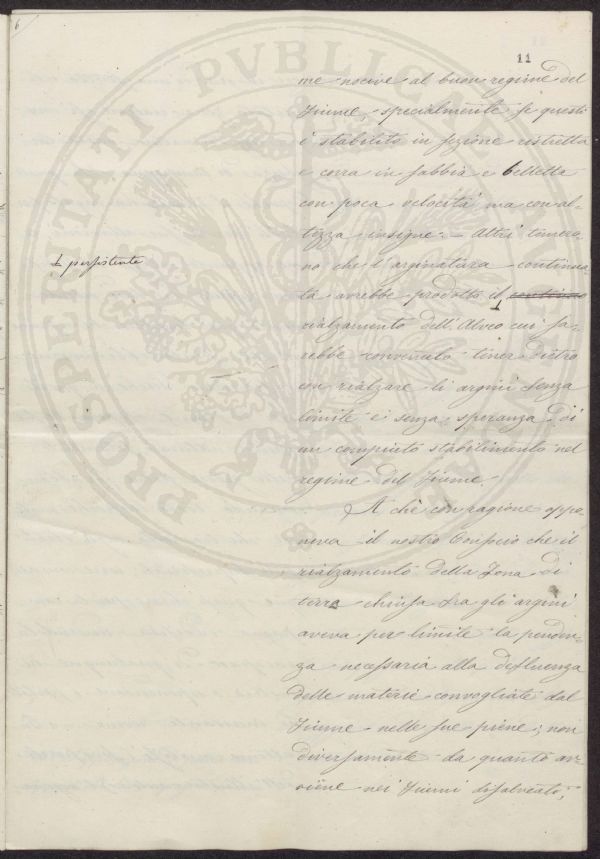 6
11
PROSPERITATI PVBLICAE
me nocive al buon regime del
Fiume, specialmente se questi
è stabilito in sezione ristretta
e corra in sabbia e belletta
con poca velocità ma con al-
tezza insigne. - Altri temero-
no che l'arginatura continua
ta avrebbe prodotto il continuo
⊥ persistente
rialzamento dell'Alveo cui sa-
rebbe convenuto tener dietro
con rialzare li argini senza
limite e senza speranza di
un compiuto stabilimento nel
regime del Fiume.
A che con ragione oppo
neva il nostro Consocio che il
rialzamento della Zona di
terra chiusa fra gli argini
aveva per limite la penden-
za necessaria alla defluenza
delle materie convogliate dal
Fiume nelle sue piene; non
diversamente da quanto av-
viene nei Fiumi disalveati,